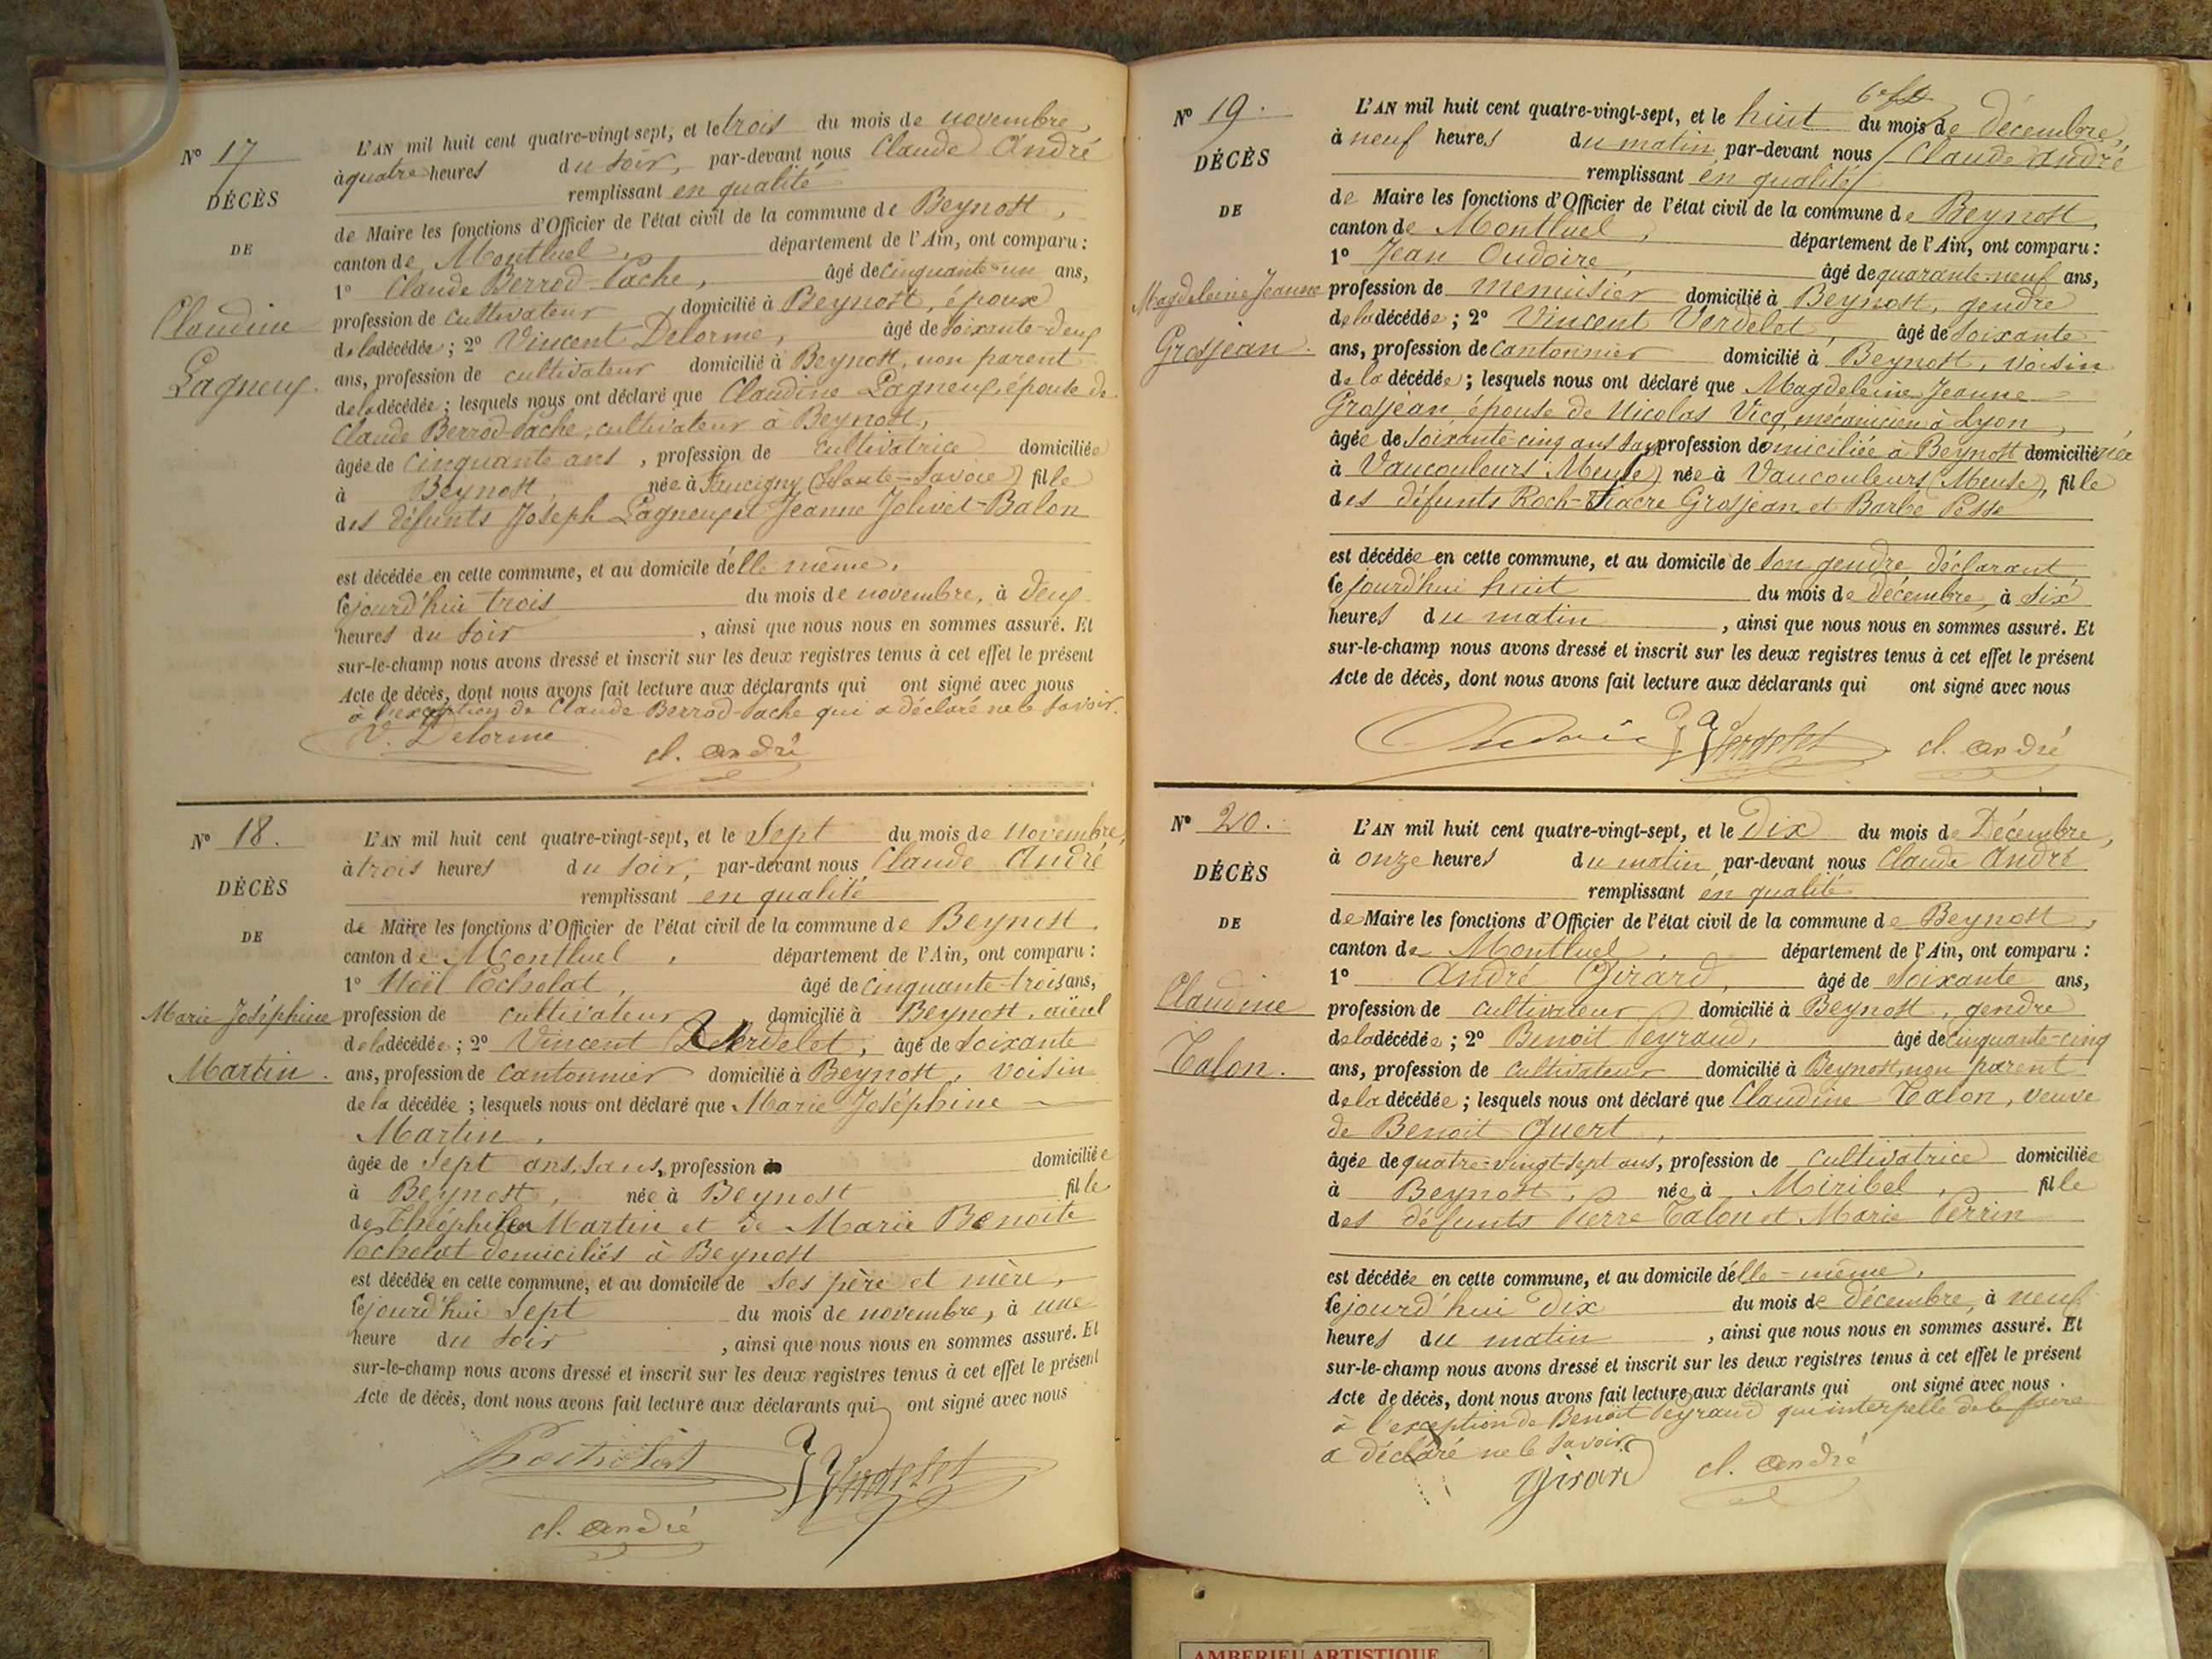 N° 17
DÉCÈS
DE
Claudine
Lagneux.
L'AN mil huit cent quatre-vingt-sept, et le trois du mois de novembre,
à quatre heures du soir, par-devant nous Claude André
remplissant en qualité
de Maire les fonctions d'Officier de l'état civil de la commune de Beynost,
canton de Montluel, département de l'Ain, ont comparu :
1° Claude Berrod-Vache, âgé de cinquante-un ans,
profession de cultivateur, domicilié à Beynost, époux
de la décédée ; 2° Vincent Delorme, âgé de soixante-deux
ans, profession de cultivateur domicilié à Beynost, non parent
de la décédée ; lesquels nous ont déclaré que Claudine Lagneux, épouse de
Claude Berrod-Vache, cultivateur à Beynost,
âgée de cinquante ans, profession de cultivatrice domiciliée
à Beynost, née à Faucigny (Haute-Savoie) fille
des défunts Joseph Lagneux et Jeanne Jolivet-Balon
est décédée en cette commune, et au domicile d'elle même,
cejourd'hui trois du mois de novembre, à deux
heures du soir, ainsi que nous nous en sommes assuré. Et
sur-le-champ nous avons dressé et inscrit sur les deux registres tenus à cet effet le présent
Acte de décès, dont nous avons fait lecture aux déclarants qui ont signé avec nous
à l'exception de Claude Berrod-Vache qui a déclaré ne le savoir.
V. Delorme
cl. andré
N° 18.
DÉCÈS
DE
Marie Joséphine
Martin.
L'AN mil huit cent quatre-vingt-sept, et le sept du mois de novembre,
à trois heures du soir, par-devant nous Claude André
remplissant en qualité
de Maire les fonctions d'Officier de l'état civil de la commune de Beynost,
canton de Montluel, département de l'Ain, ont comparu :
1° Noël Pocholat, âgé de cinquante-trois ans,
profession de cultivateur, domicilié à Beynost, aïeul
de la décédée ; 2° Vincent Verdelet, âgé de soixante
ans, profession de cantonnier domicilié à Beynost, voisin
de la décédée ; lesquels nous ont déclaré que Marie Joséphine
Martin,
âgée de sept ans, sans profession domiciliée
à Beynost, née à Beynost fille
de Théophile Martin et de Marie Benoite
Pocholat domiciliés à Beynost
est décédée en cette commune, et au domicile de ses père et mère,
cejourd'hui sept du mois de novembre, à une
heure du soir, ainsi que nous nous en sommes assuré. Et
sur-le-champ nous avons dressé et inscrit sur les deux registres tenus à cet effet le présent
Acte de décès, dont nous avons fait lecture aux déclarants qui ont signé avec nous
Pocholat
Verdelet
cl. andré
N° 19.
DÉCÈS
DE
Magdeleine Jeanne
Grosjean.
L'AN mil huit cent quatre-vingt-sept, et le huit du mois de décembre,
à neuf heures du matin, par-devant nous Claude André
remplissant en qualité
de Maire les fonctions d'Officier de l'état civil de la commune de Beynost,
canton de Montluel, département de l'Ain, ont comparu :
1° Jean Oudoire, âgé de quarante-neuf ans,
profession de menuisier domicilié à Beynost, gendre
de la décédée ; 2° Vincent Verdelet, âgé de soixante
ans, profession de cantonnier domicilié à Beynost, voisin
de la décédée ; lesquels nous ont déclaré que Magdeleine Jeanne
Grosjean épouse de Nicolas Vicq, mécanicien à Lyon,
âgée de soixante-cinq ans sans profession domiciliée à Beynost domiciliée née
à Vaucouleurs (Meuse) née à Vaucouleurs (Meuse), fille
des défunts Roch-Fiacre Grosjean et Barbe Pesse
est décédée en cette commune, et au domicile de son gendre déclarant
cejourd'hui huit du mois de décembre, à six
heures du matin, ainsi que nous nous en sommes assuré. Et
sur-le-champ nous avons dressé et inscrit sur les deux registres tenus à cet effet le présent
Acte de décès, dont nous avons fait lecture aux déclarants qui ont signé avec nous
Oudoire
Verdelet
cl. andré
N° 20.
DÉCÈS
DE
Claudine
Talon.
L'AN mil huit cent quatre-vingt-sept, et le dix du mois de Décembre,
à onze heures du matin, par-devant nous Claude André
remplissant en qualité
de Maire les fonctions d'Officier de l'état civil de la commune de Beynost,
canton de Montluel, département de l'Ain, ont comparu :
1° André Girard, âgé de soixante ans,
profession de cultivateur domicilié à Beynost, gendre
de la décédée ; 2° Benoit Peyraud, âgé de cinquante-cinq
ans, profession de cultivateur domicilié à Beynost, non parent
de la décédée ; lesquels nous ont déclaré que Claudine Talon, veuve
de Benoit Guert,
âgée de quatre-vingt-sept ans, profession de cultivatrice domiciliée
à Beynost, née à Miribel, fille
des défunts Pierre Talon et Marie Perrin
est décédée en cette commune, et au domicile d'elle-même,
cejourd'hui dix du mois de décembre, à neuf
heures du matin, ainsi que nous nous en sommes assuré. Et
sur-le-champ nous avons dressé et inscrit sur les deux registres tenus à cet effet le présent
Acte de décès, dont nous avons fait lecture aux déclarants qui ont signé avec nous.
à l'exception de Benoit Peyraud qui interpellé de le faire
a déclaré ne le savoir
Girard
cl. andré
AMBERIEU ARTISTIQUE